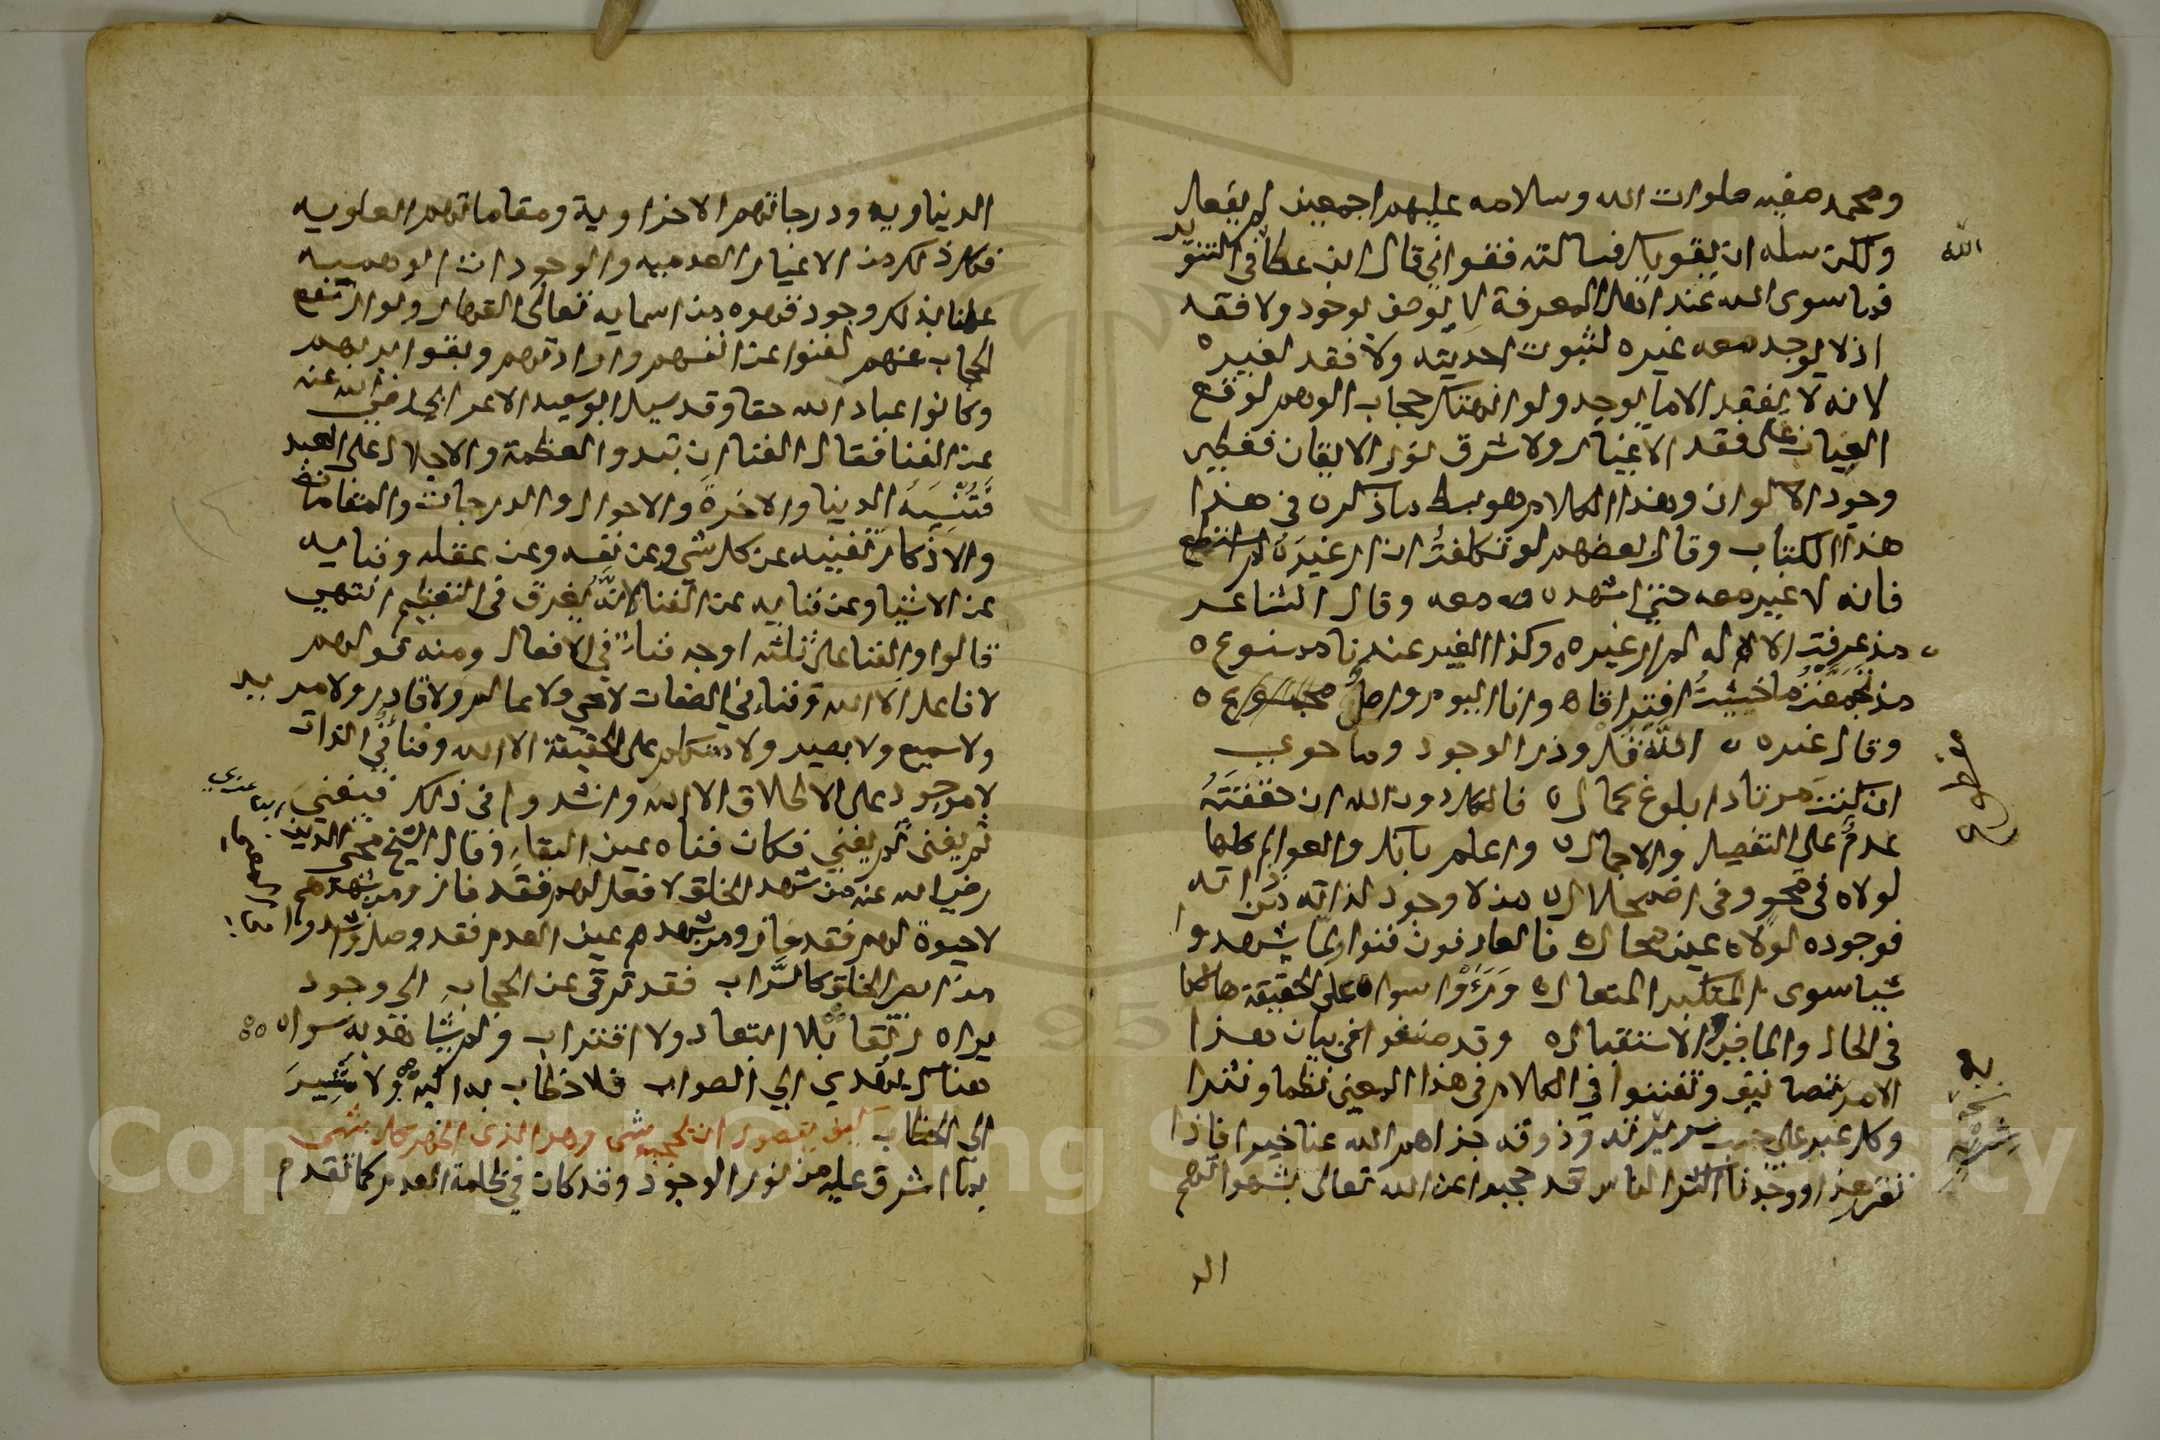 ومحمد صفيه صلوات الله وسلامه عليهم اجمعين لم يفعل
ولكن سله ان يقويك فسالته فقواني قال ابن عطا في التنوير
الله
فما سوى الله عند اهل المعرفة لا يوصف بوجود ولا فقد
اذ لا يوجد معه غيره لثبوت احديته ولا فقد لغيره
لانه لا يفقد الا ما يوجد ولو انهتك حجاب الوهم لوقع
العيان على فقد الاغيار ولاشرق نور الايقان فغطى
وجود الاكوان وهذا الكلام هو بسط ما ذكره في هذا
هذا الكتاب وقال بعضهم لو تكلفت ان ارى غيره لم استطع
فانه لا غير معه حتى اشهده معه وقال الشاعر
مذ عرفت الاله لم ار غيره وكذا الغير عندنا ممنوع
مذ تجمعت ما خشيت افتراقا وانا اليوم واصل مجموع
وقال غيره الله قل وذر الوجود وما حوى
ان كنت مرتادا بلوغ كمال فالكل دون الله ان حققته
عدم على التفصيل والاجمال واعلم بانك والعوالم كلها
لولاه في محو وفي اضمحلال من لا وجود لذاته من ذاته
فوجوده لولاه عين محال فالعارفون فنوا ولما يشهدوا
شيا سوى المتكبر المتعال وراوا سواه على الحقيقة هالكا
في الحال والماضي والاستقبال وقد صنفوا في بيان هذا
الامر تصانيف وتفننوا في الكلام في هذا المعنى نظما ونثرا
وكل عبر على حسب سريرته وذوقه جزاهم الله عنا خيرا فاذا
تقرر هذا ووجدنا اكثر الناس قد حجبوا عن الله تعالى بشهواتهم
الد
الدنياويه ودرجاتهم الاخراوية ومقاماتهم العلويه
فكل ذلك من الاغيار العدميه والوجودات الوهميه
علمنا بذلك وجود قهره من اسمايه تعالى القهار ولو ارتفع
الحجاب عنهم لفنوا عن انفسهم وارادتهم وبقوا بربهم
وكانوا عباد الله حقا وقد سيل ابو سعيد الاعرابي رضي الله عنه
عن الفنا فقال الفنا ان تبدو العظمة والاجلال على العبد
فتنسيه الدنيا والاخرة والاحوال والدرجات والمقامات
والاذكار تفنيه عن كل شي وعن نفسه وعن عقله وفنايه
عن الاشيا وعن فنايه عن الفنا لانه يغرق في التعظيم انتهى
قالوا والفنا على ثلثه اوجه فناء في الافعال ومنه قولهم
لا فاعل الا الله وفناء في الصفات لا حي ولا عالم ولا قادر ولا مريد
ولا سميع ولا بصير ولا متكلم على الحقيقة الا الله وفناء في الذات
لا موجود على الاطلاق الا الله وانشدوا في ذلك فيفنى
ثم يفنى ثم يفنى فكان فناه عين البقاء وقال الشيخ محي الدين
رضي الله عنه من شهد الخلق لا فعل لهم فقد فاز ومن شهدهم
لا حيوة لهم فقد حاز ومن شهدهم عين العدم فقد وصل وانشدوا
من ابصر الخلق كالسراب فقد ترقى عن الحجاب الى وجود
يراه رتقا بلا ابتعاد ولا اقتراب ولم يشاهد به سواه
هناك يهدي الي الصواب فلا خطاب به اليه ولا مشير
الى الخطاب كيف يتصور ان يحجبه شي وهو الذي اظهر كل شي
بما اشرق عليه من نور الوجود وقد كان في ظلمة العدم كما تقدم